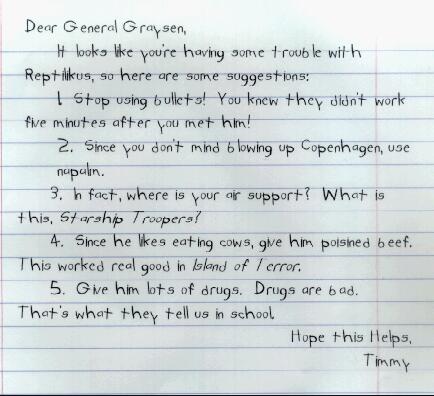 Dear General Graysen,
It looks like you're having some trouble with
Reptilikus, so here are some suggestions:
1. Stop using bullets! You knew they didn't work
five minutes after you met him!
2. Since you don't mind blowing up Copenhagen, use
napalm.
3. In fact, where is your air support? What is
this, Starship Troopers?
4. Since he likes eating cows, give him poisined beef.
This worked real good in Island of Terror.
5. Give him lots of drugs. Drugs are bad.
That's what they tell us in school.
Hope this Helps,
Timmy